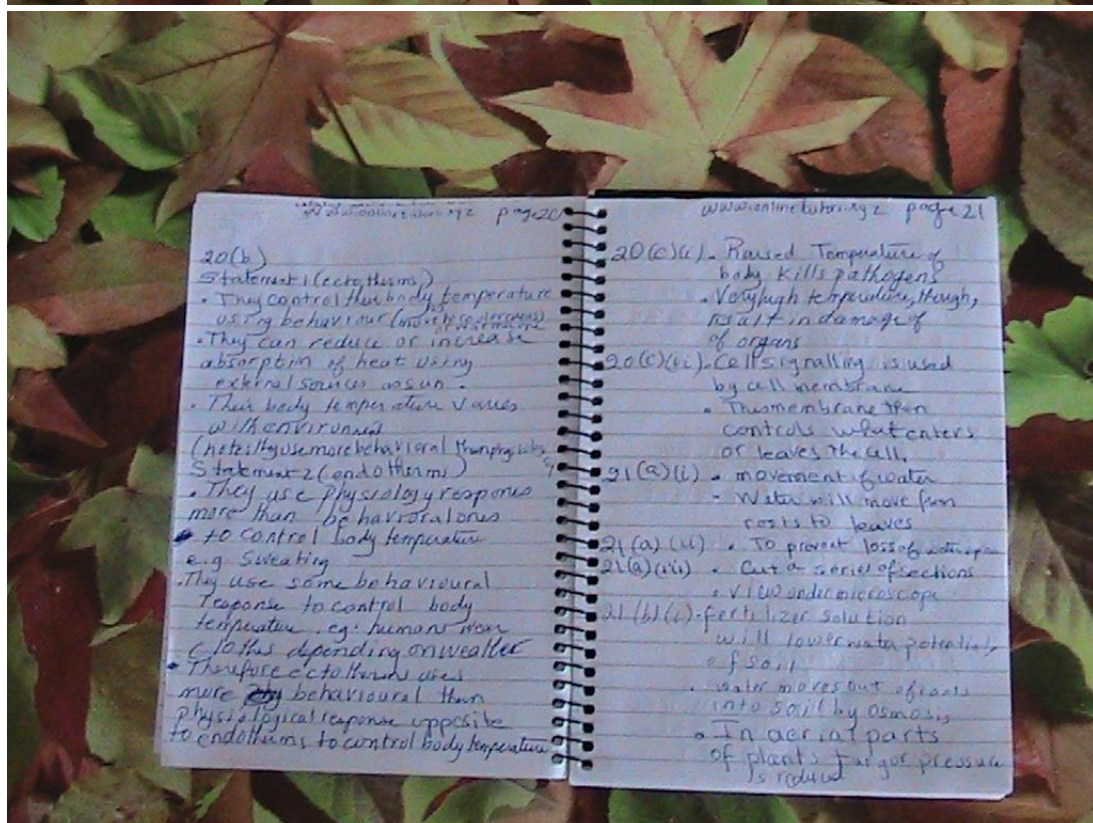 page 20
20(b)
Statement 1 (ectotherms)
• They control their body temperature
using behaviour (move
• They can reduce or increase
absorption of heat using
external sources as sun.
• Their body temperature varies
with environment
(note: they use more behavioral than
Statement 2 (endotherms)
• They use physiology respones
more than behavioral ones
• to control body temperature
e.g sweating
• They use some behavioural
response to control body
temperature. eg: humans wear
clothes depending on weather
• Therefore ectotherms uses
more behavioural than
physiological response opposite
to endotherms to control body temperature
www.onlinetutor.xyz page 21
20(c)(i). Raised Temperature of
body kills pathogens
• Very high temperature, though,
result in damage of
of organs
20(c)(ii). Cell signalling is used
by cell membrane
• This membrane then
controls what enters
or leaves the cell.
21(a)(i) • movement of water
- Water will move from
roots to leaves
21(a)(ii) • To prevent loss of water
21(a)(iii) • Cut a series of sections
• view under microscope
21(b)(i) • fertilizer solution
will lower water potential
of soil
• water moves out of roots
into soil by osmosis
• In aerial parts
of plants turgor pressure
is reduced